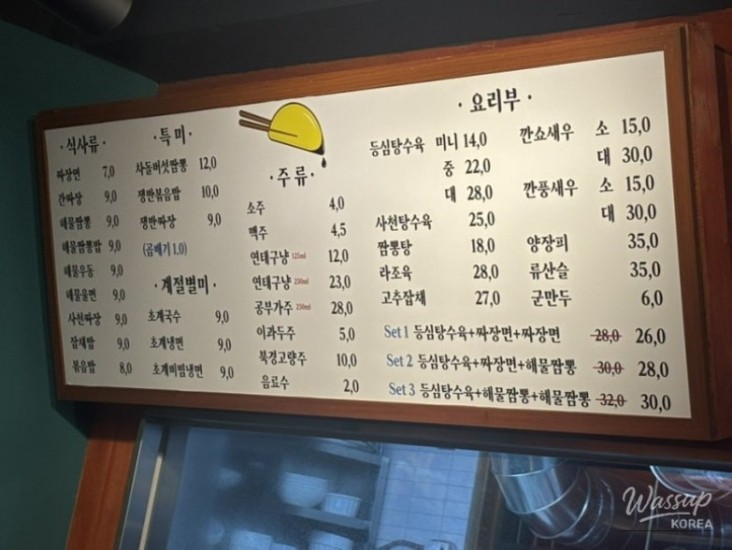 · 식사류 ·
짜장면 7,0
간짜장 9,0
해물짬뽕 9,0
해물짬뽕밥 9,0
해물우동 9,0
해물울면 9,0
사천짜장 9,0
잡채밥 9,0
볶음밥 8,0
· 특미 ·
차돌버섯짬뽕 12,0
쟁반볶음밥 10,0
쟁반짜장 9,0
(곱빼기 1.0)
· 계절별미 ·
초계국수 9,0
초계냉면 9,0
초계비빔냉면 9,0
· 주류 ·
소주 4,0
맥주 4,5
연태구냥 125ml 12,0
연태구냥 250ml 23,0
공부가주 250ml 28,0
이과두주 5,0
북경고량주 10,0
음료수 2,0
· 요리부 ·
등심탕수육 미니 14,0
중 22,0
대 28,0
사천탕수육 25,0
짬뽕탕 18,0
라조육 28,0
고추잡채 27,0
깐쇼새우 소 15,0
대 30,0
깐풍새우 소 15,0
대 30,0
양장피 35,0
류산슬 35,0
군만두 6,0
Set 1 등심탕수육+짜장면+짜장면 28,0 26,0
Set 2 등심탕수육+짜장면+해물짬뽕 30,0 28,0
Set 3 등심탕수육+해물짬뽕+해물짬뽕 32,0 30,0
Wassup
KOREA